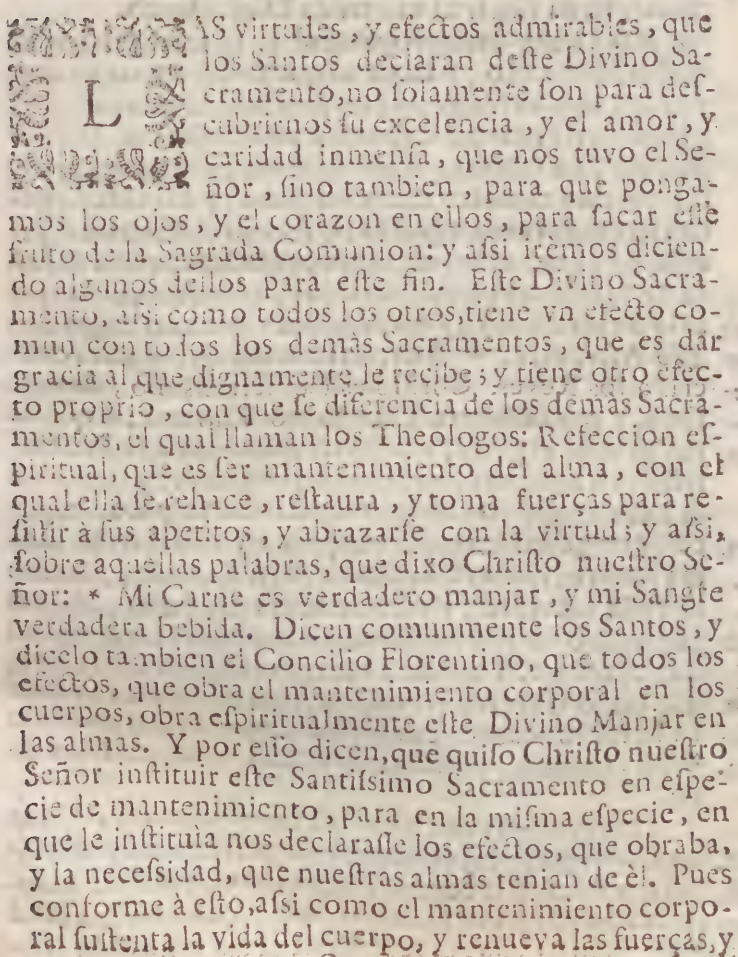 LAS virtudes, y efectos admirables, que
los Santos declaran deste Divino Sa-
cramento, no solamente son para des-
cubrirnos su excelencia, y el amor, y
caridad inmensa, que nos tuvo el Se-
ñor, sino tambien, para que ponga-
mos los ojos, y el corazon en ellos, para sacar este
fruto de la Sagrada Comunion: y assi irèmos dicien-
do algunos dellos para este fin. Este Divino Sacra-
mento, assi como todos los otros, tiene vn efecto co-
mun con todos los demàs Sacramentos, que es dár
gracia al que dignamente le recibe; y tiene otro efec-
to proprio, con que se diferencia de los demàs Sacra-
mentos, el qual llaman los Theologos: Refeccion es-
piritual, que es ser mantenimiento del alma, con el
qual ella se rehace, restaura, y toma fuerças para re-
sistir à sus apetitos, y abrazarse con la virtud; y assi,
sobre aquellas palabras, que dixo Christo nuestro Se-
ñor: * Mi Carne es verdadero manjar, y mi Sangre
verdadera bebida. Dicen comunmente los Santos, y
dicelo tambien el Concilio Florentino, que todos los
efectos, que obra el mantenimiento corporal en los
cuerpos, obra espiritualmente este Divino Manjar en
las almas. Y por esso dicen, que quiso Christo nuestro
Señor instituir este Santissimo Sacramento en espe-
cie de mantenimiento, para en la misma especie, en
que le instituìa nos declarasse los efectos, que obraba,
y la necessidad, que nuestras almas tenian de èl. Pues
conforme à esto, assi como el mantenimiento corpo-
ral sustenta la vida del cuerpo, y renueva las fuerças, y